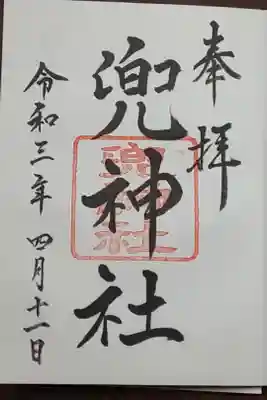 奉拝
兜神社
兜神社
令和三年 四月十一日